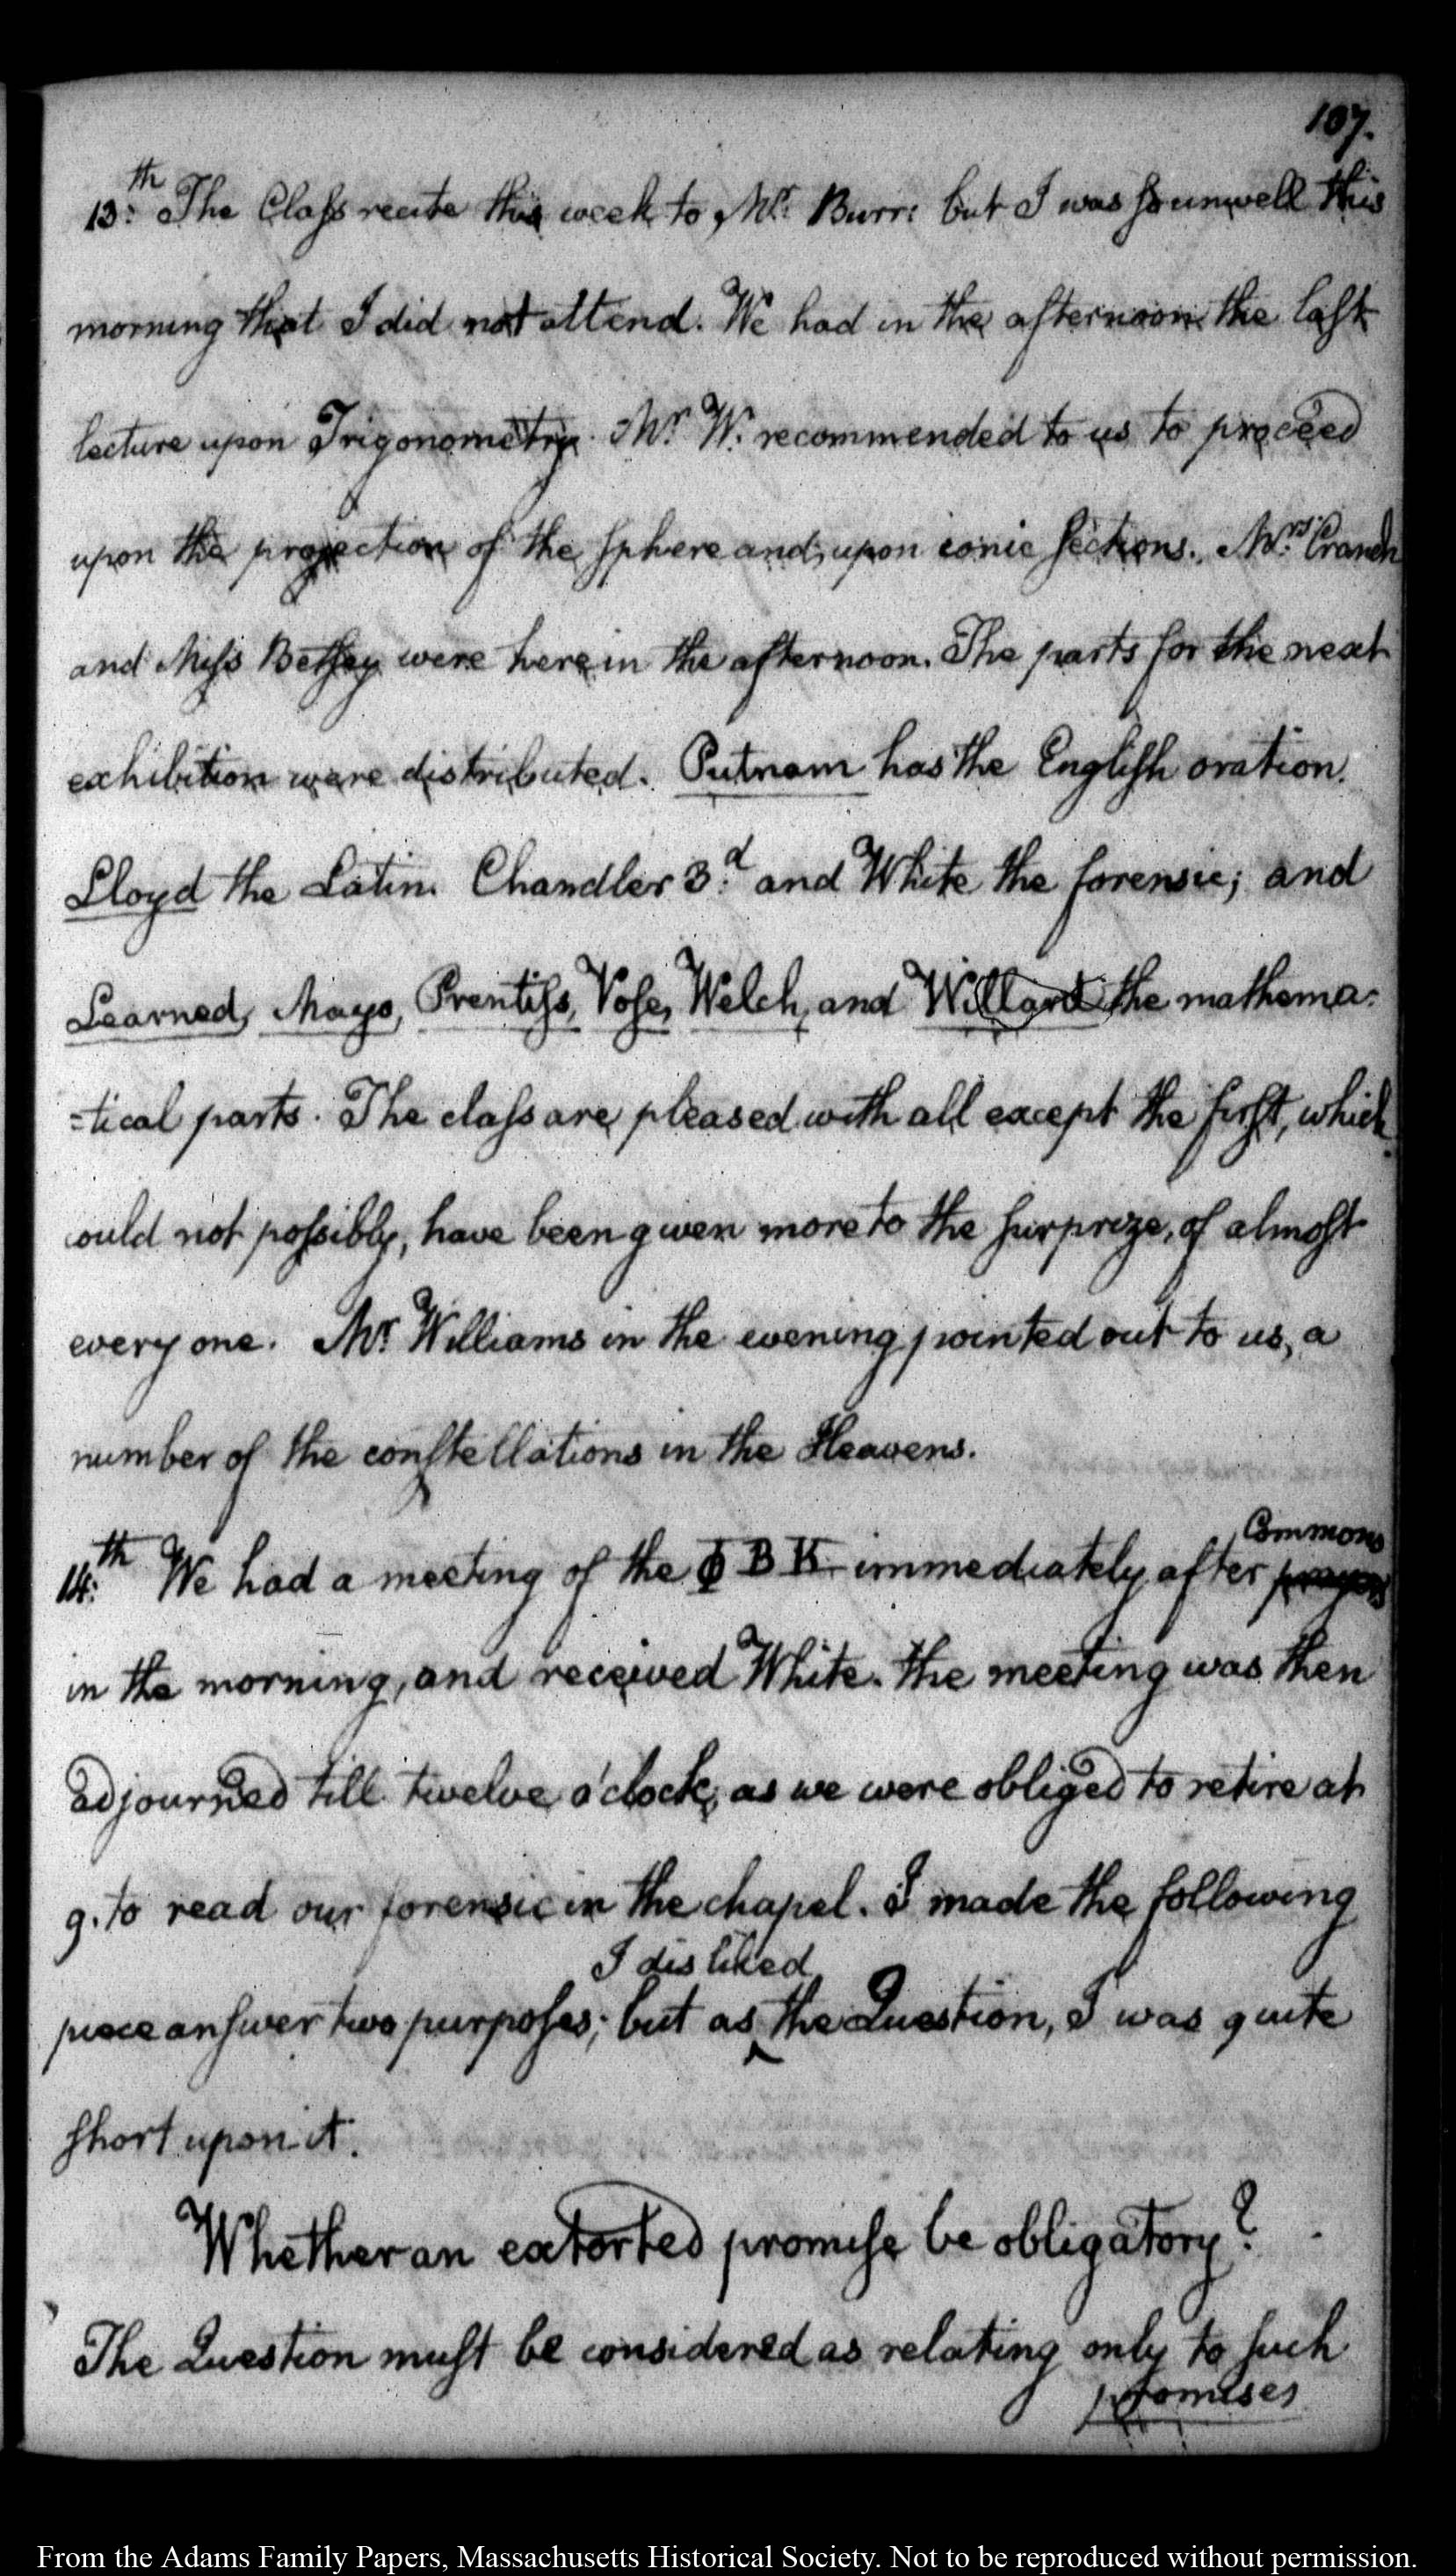 107.
13:th The Class recite this week to Mr: Burr: but I was so unwell this
morning that I did not attend. We had in the afternoon the last
lecture upon Trigonometry. Mr W. recommended to us to proceed
upon the projection of the sphere and, upon conic sections. Mrs: Cranch
and Miss Betsey were here in the afternoon. The parts for the next
exhibition were distributed. Putnam has the English oration.
Lloyd the Latin. Chandler 3:d and White the forensic; and
Learned, Mayo, Prentiss, Vose, Welch, and Willard the mathema:
=tical parts. The class are pleased with all except the first, which
could not possibly, have been given more to the surprize, of almost
every one. Mr. Williams in the evening pointed out to us, a
number of the constellations in the Heavens.
14:th We had a meeting of the Φ B K immediately after prayers Commons
in the morning, and received White. the meeting was then
adjourned till twelve o'clock, as we were obliged to retire at
9. to read our forensic in the chapel. I made the following
I disliked
piece answer two purposes; but as ‸ the Question, I was quite
short upon it.
Whether an extorted promise be obligatory?
The Question must be considered as relating only to such
promises
From the Adams Family Papers, Massachusetts Historical Society. Not to be reproduced without permission.